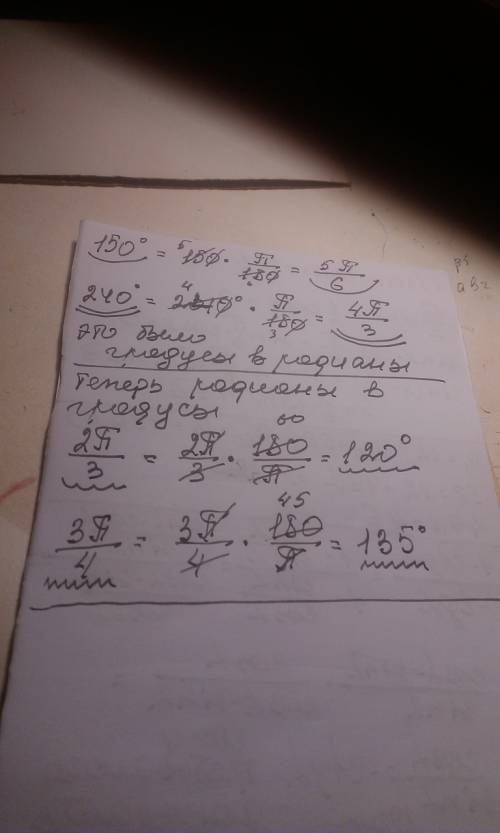 150° = ⁵150 · П/180 = 5П/6
240° = ⁴240° · П/180₃ = 4П/3
это было
градусы в радианы
теперь радианы в
градусы
2П/3 = 2П/3 · 180⁶⁰/П = 120°
3П/4 = 3П/4 · 180⁴⁵/П = 135°